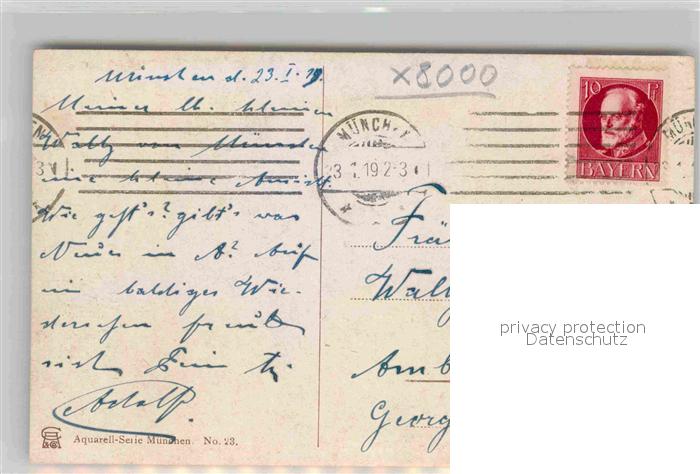 München d. 23.I.19.
x8000
Meiner lb. kleinen
Wally von München
eine kleine Ansicht.
Wie geht's? gibt's was
Neues in A? Auf
ein baldiges Wie-
dersehen freut
sich Dein
Adolf.
MÜNCHEN
23.1.19 2-3
10 Pf
BAYERN
MÜN
Frä
Wally
Amb
Georg
privacy protection
Datenschutz
Aquarell-Serie München. No. 23.